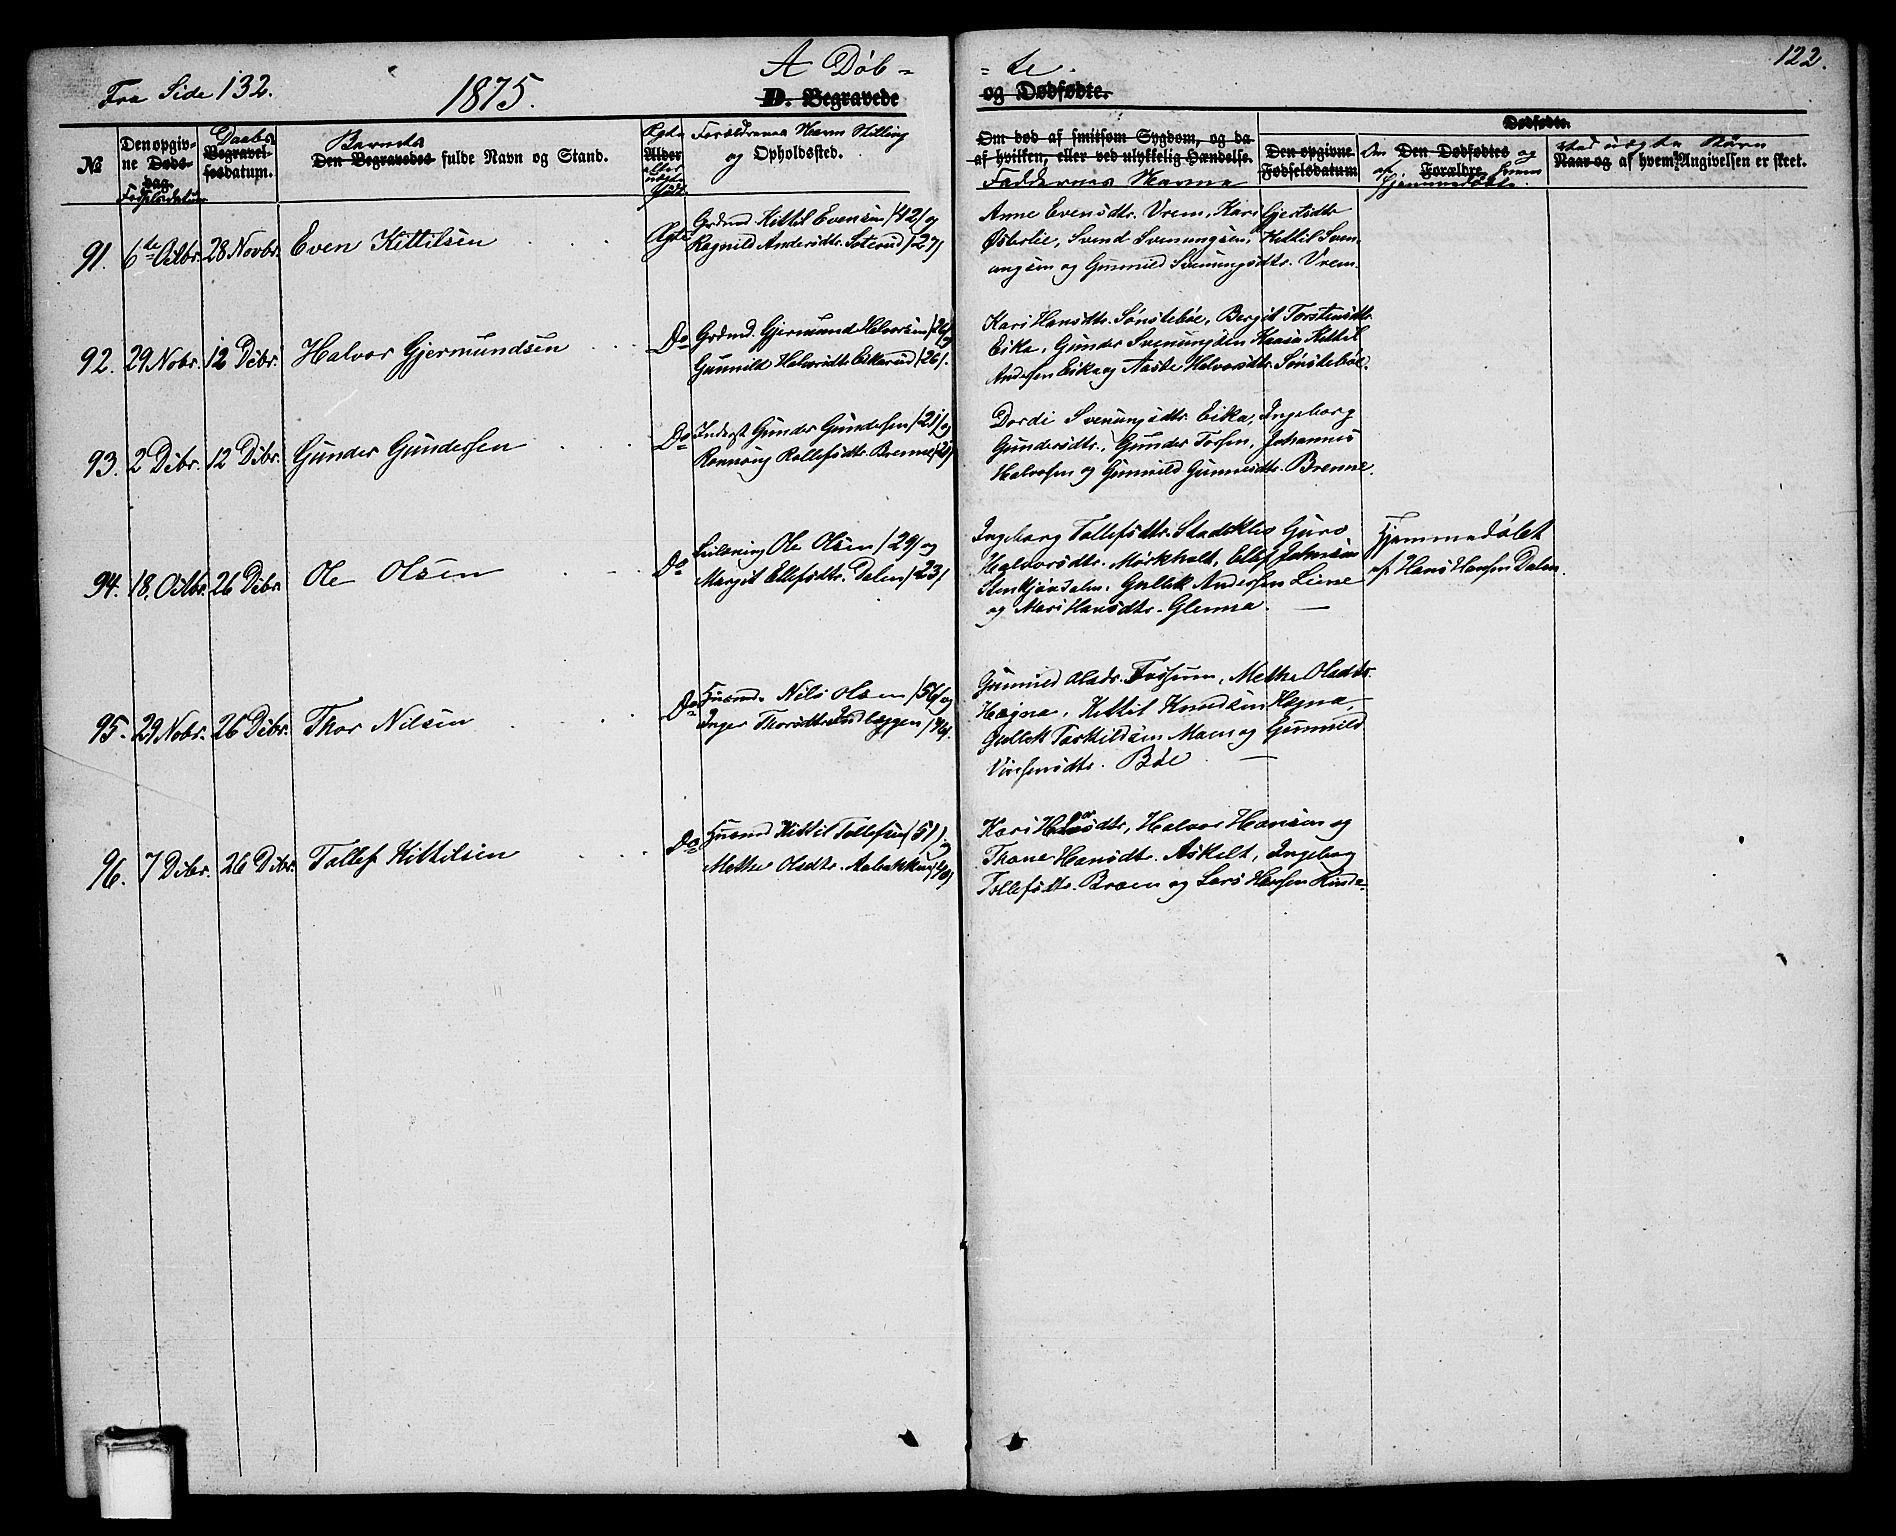 Fra Side 132.
1875.
A Døb-
-te.
122.
D. Begravede
og Dødfødte.
№
Den opgivne Døds-dag. Fødselsdatum
Daabs Begravelsesdatum.
Barnets Den Begravedes fulde Navn og Stand.
Ægte Alder eller uægte født
Forældrenes Navn Stilling og Opholdssted.
Om død af smitsom Sygdom, og da af hvilken, eller ved ulykkelig Hændelse.
Faddernes Navne
Dødfødte.
Den opgivne Fødselsdatum
Den Dødfødtes Forældre
Om og af hvem Hjemmedøbte.
Ved uægte Børn
Naar og af hvem Angivelsen er skeet.
91. 6te Octbr. 28 Novbr. Even Kittilsen Ægte
Grdmd. Kittil Evensen /42/ og
Ragnild Andersdtr. Soterud /27/
Anne Evensdtr. Vrem, Kari Gjertsdtr
Østerlie, Svend Svenungsen, Kittil Sven-
ungsen og Gunnild Svenungsdtr. Vrem.
92. 29 Nobr. 12 Debr. Halvor Gjermundsen Do
Grdmd. Gjermund Halvorsen /26/ og
Gunnild Halvorsdtr Eikarud /26/.
Kari Hansdtr. Sønstebøe, Bergit Torstensdtr.
Eika, Gunder Svenungsen Kaasa Kittil
Andersen Eika og Aaste Halvorsdtr. Sønstebøe.
93. 2 Debr. 12 Debr. Gunder Gundersen Do
Inderst Gunder Gundersen /21/ og
Rønnoug Rollefsdtr. Brenne /29/
Dordi Svenungsdtr. Eika, Ingeborg
Gundersdtr., Gunder Torsen, Johannes
Halvorsen og Gunnild Gunnersdtr. Brenne.
94. 18. Octbr. 26 Debr. Ole Olsen Do
Leilending Ole Olsen /29/ og
Margit Ellefsdtr. Dalen /23/
Ingeborg Tollefsdtr. Stadskleo Guro
Halvorsdtr. Mørkholt, Ellef Johnsen
Stenkjøndalen, Gullik Andersen Liene
og Mari Hansdtr. Glenna.
Hjemmedøbt
af Hans Hansen Dalen.
95. 29 Nobr. 26 Debr. Thor Nilsen Do
Huusmd. Nils Olsen /56/ og
Inger Thorsdtr. Indlæggen /46/.
Gunnild Olsdtr. Fossum, Methe Olsdtr.
Hægna, Kittil Knudsen Hægna,
Gullek Taskildsen Moen og Gunnild
Vissensdtr. Bøe.
96. 7 Debr. 26 Debr. Tollef Kittilsen Do
Huusmd Kittil Tollefsen /51/ og
Methe Olsdtr. Aabakken /40/
Kari Halvorsdtr, Halvor Hansen og
Thone Hansdtr. Askelt, Ingeborg
Tollefsdtr. Braaen og Lars Hansen Rinde.